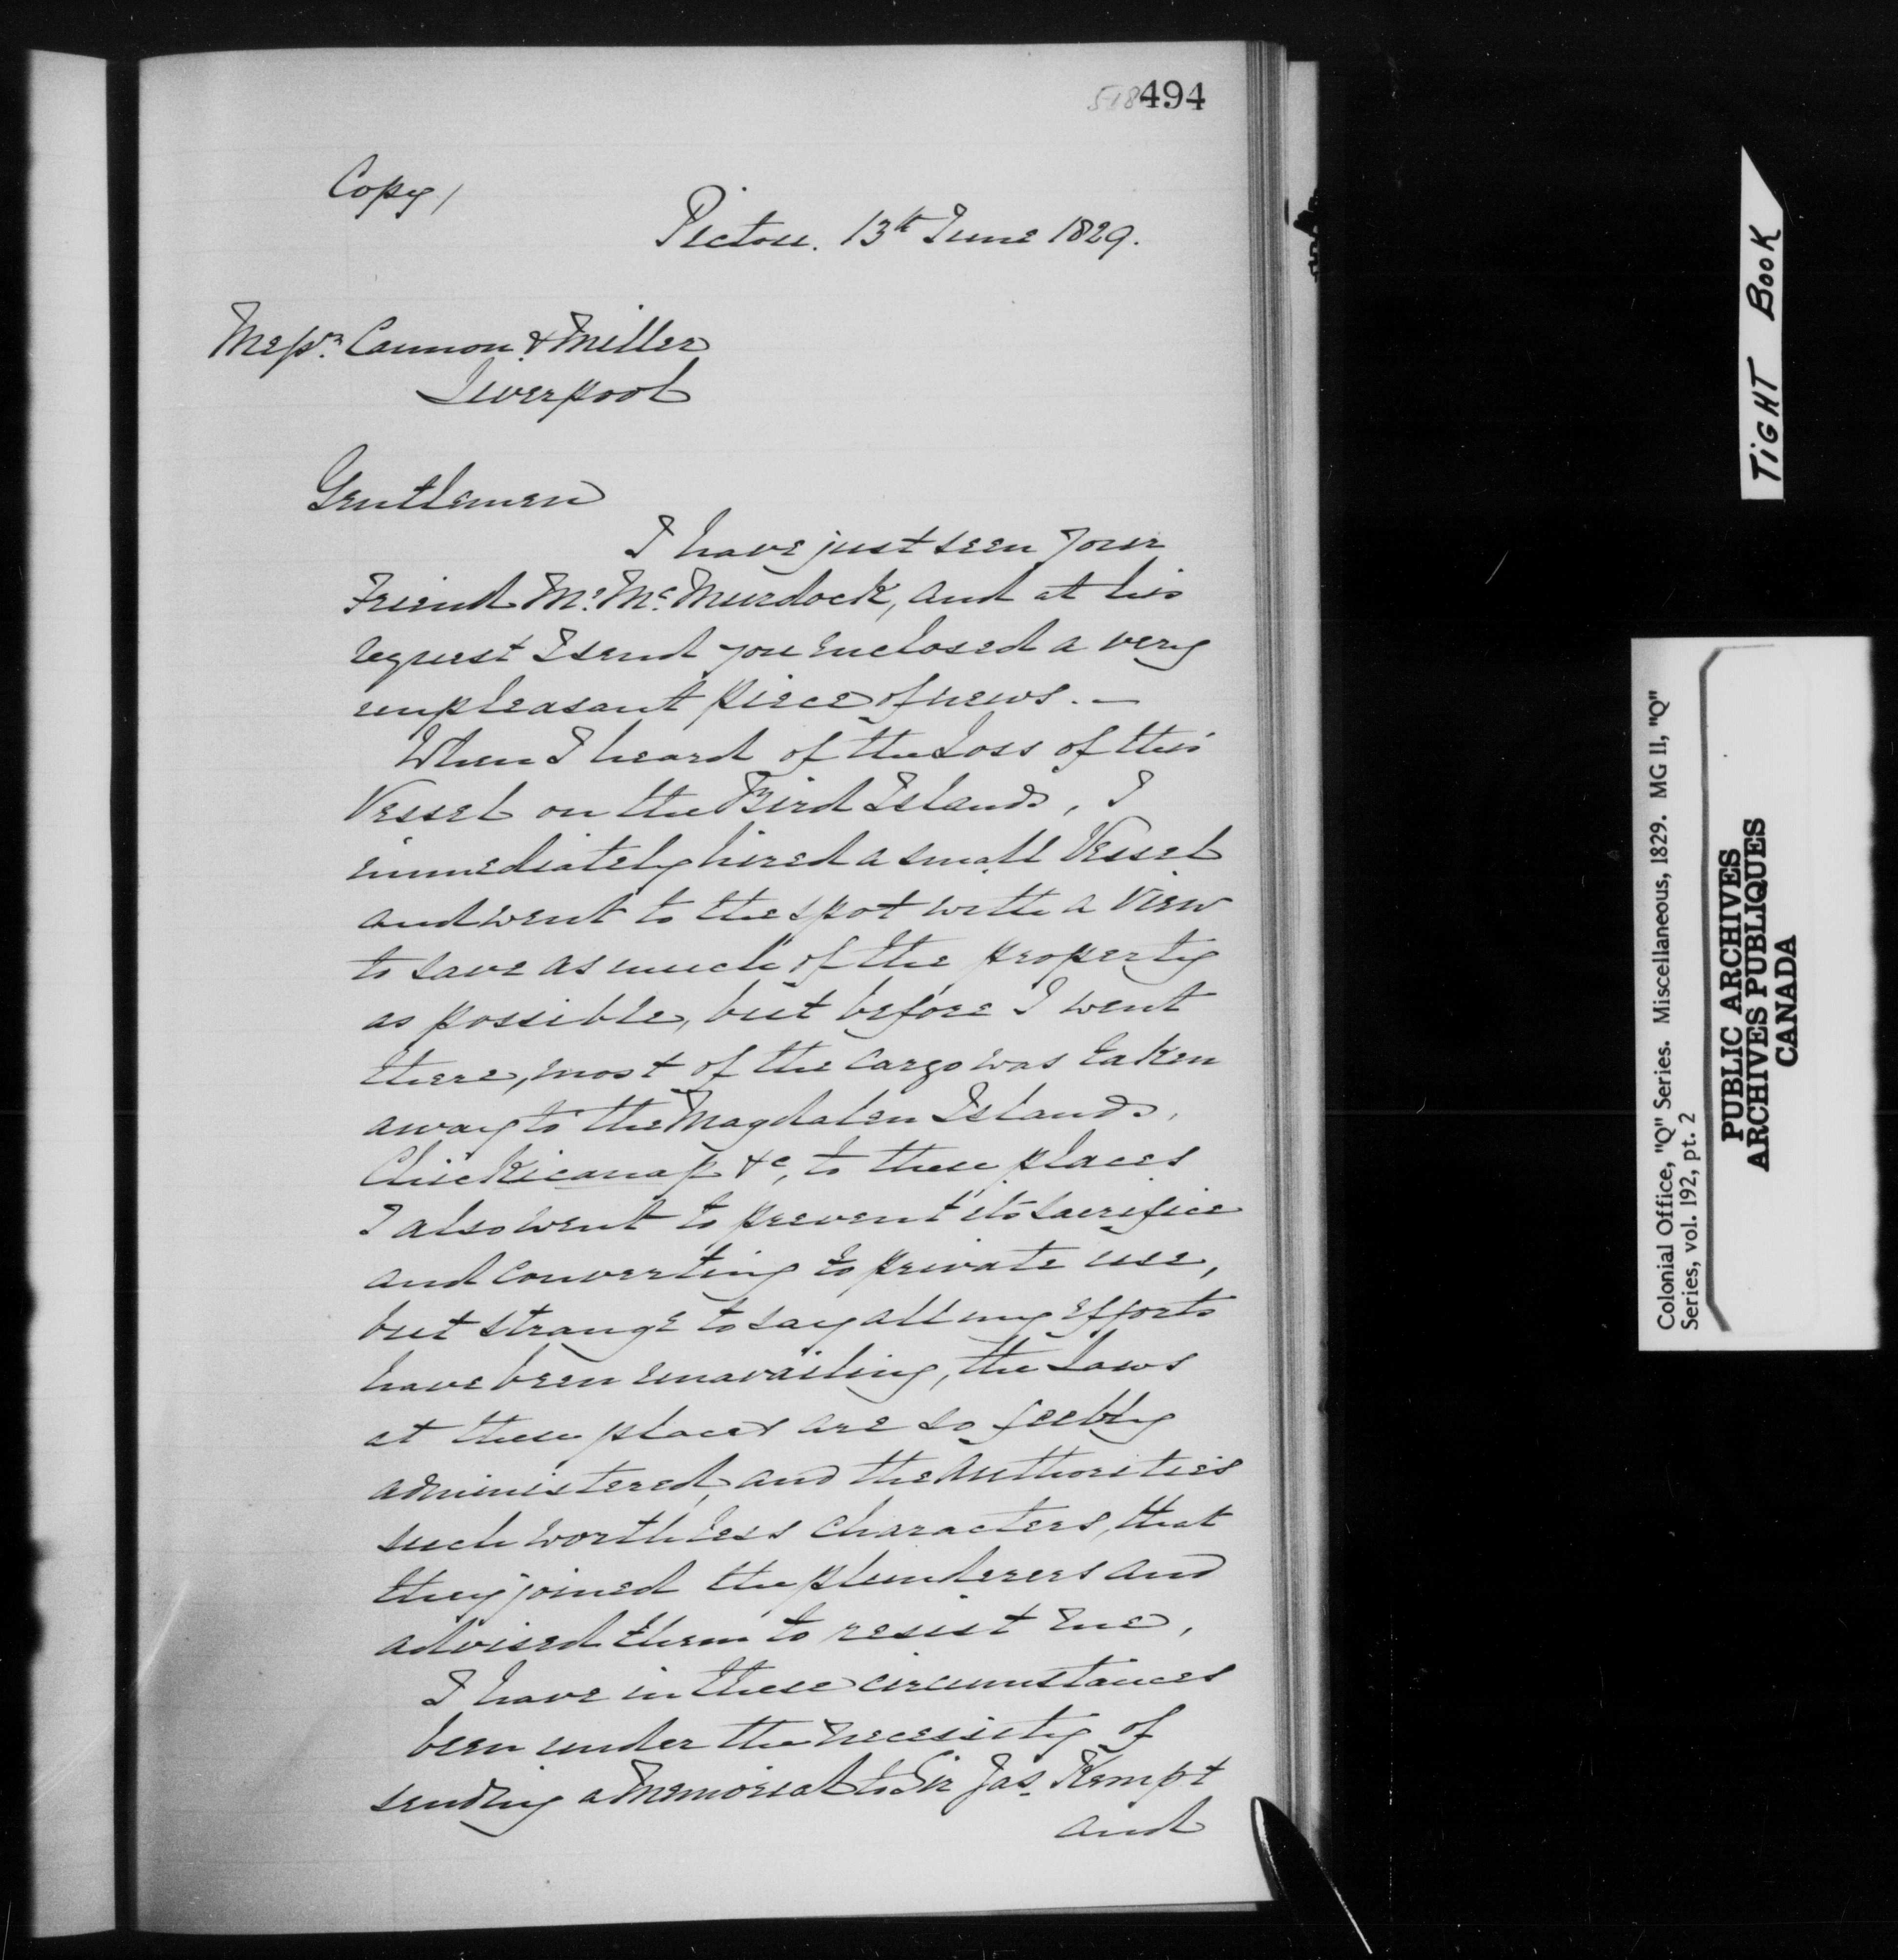 518 494
Copy/
Pictou. 13th June 1829.
Messrs. Cannon & Miller
Liverpool
Gentlemen
I have just seen your
Friend Mr. McMurdock, and at his
request I send you enclosed a very
unpleasant piece of news. —
When I heard of the Loss of this
Vessel on the Bird Islands, I
immediately hired a small Vessel
and went to the spot with a view
to save as much of the property
as possible, but before I went
there, most of the cargo was taken
away to the Magdalen Islands,
&c, to these places
I also went to prevent its sacrifice
and converting to private use,
but strange to say all my efforts
have been unavailing, the Laws
at these places are so feebly
administered, and the Authorities
such worthless characters, that
they joined the plunderers and
advised them to resist me,
I have in these circumstances
been under the necessity of
sending a Memorial to Sir Jas. Kempt
and
TIGHT BOOK
Colonial Office, "Q" Series. Miscellaneous, 1829. MG 11, "Q"
Series, vol. 192, pt. 2
PUBLIC ARCHIVES
ARCHIVES PUBLIQUES
CANADA